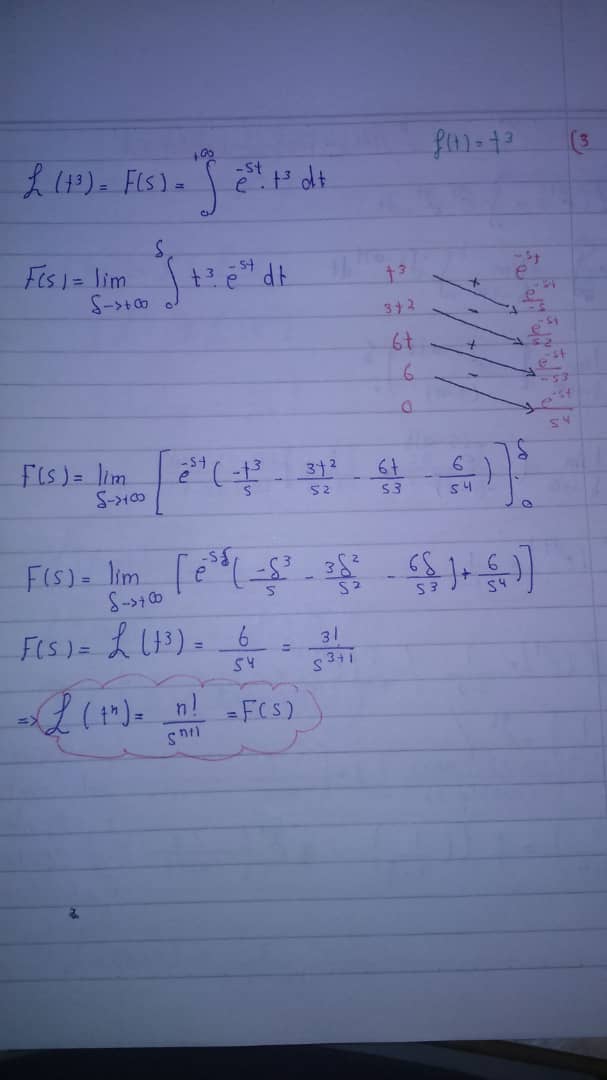 f(t) = t³ (3
ℒ(t³) = F(s) = ∫₀^{+∞} e^{-st} . t³ dt
F(s) = lim_{δ→+∞} ∫₀^{δ} t³ . e^{-st} dt
t³ + e^{-st}
3t² - e^{-st}/-s
6t + e^{-st}/s²
6 - e^{-st}/-s³
0 e^{-st}/s⁴
F(s) = lim_{δ→+∞} [ e^{-st} ( -t³/s - 3t²/s² - 6t/s³ - 6/s⁴ ) ]₀^{δ}
F(s) = lim_{δ→+∞} [ e^{-sδ} ( -δ³/s - 3δ²/s² - 6δ/s³ ) + 6/s⁴ ) ]
F(s) = ℒ(t³) = 6/s⁴ = 3!/s^{3+1}
=> ℒ(tⁿ) = n!/s^{n+1} = F(s)